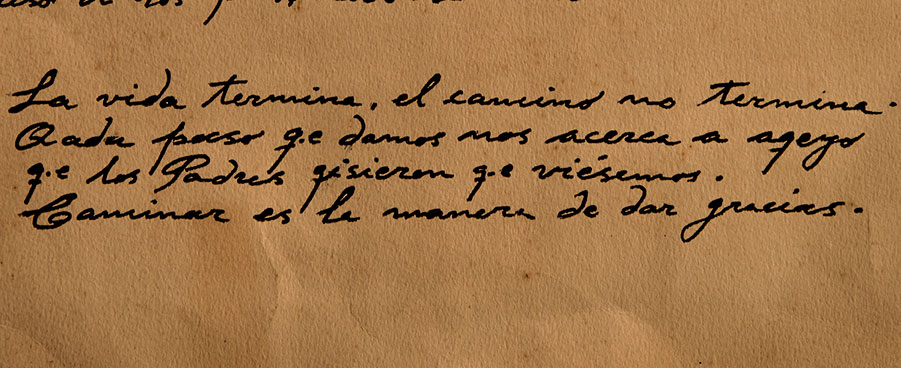 La vida termina, el camino no termina.
Cada paso q.e damos nos acerca a aqeyo
q.e los Padres qisieron q.e viésemos.
Caminar es la manera de dar gracias.